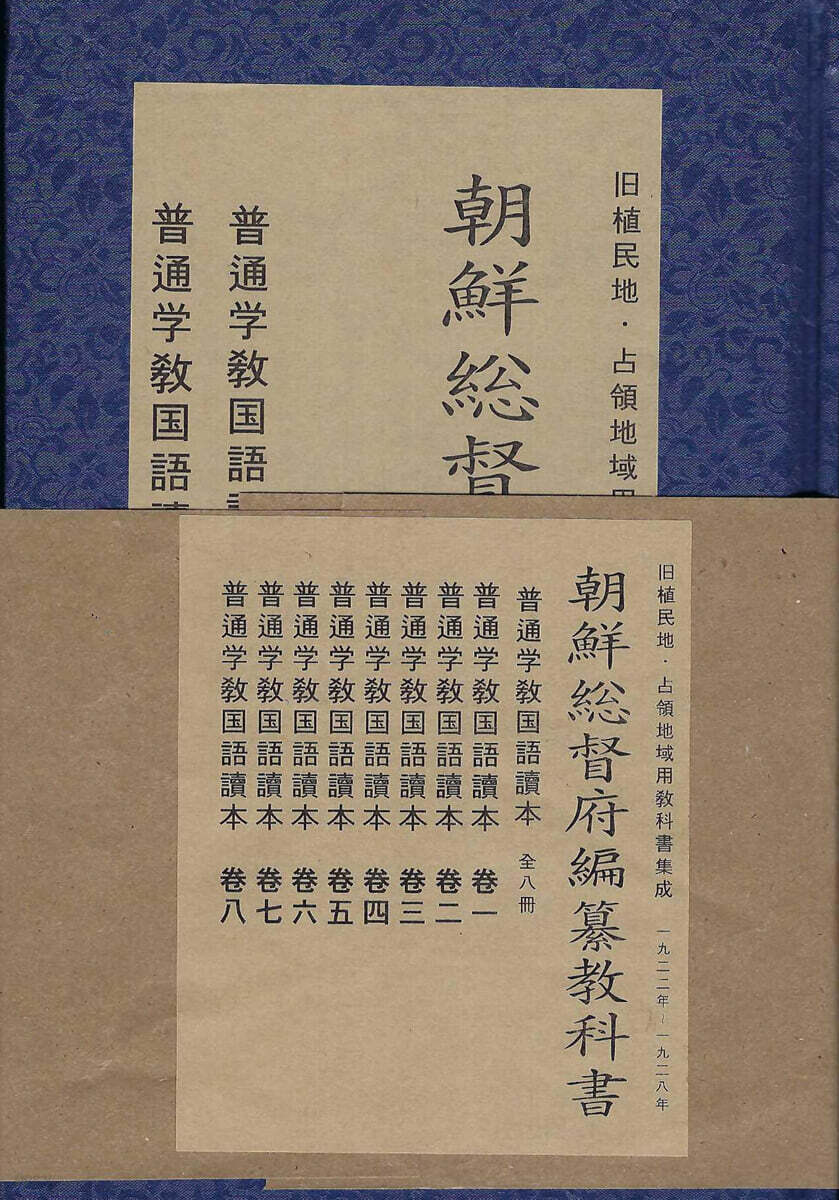 旧植民地・占領地域用
朝鮮総督
普通学敎国語讀
普通学敎国語讀
旧植民地・占領地域用敎科書集成 一九二二年~一九二八年
朝鮮総督府編纂教科書
普通学敎国語讀本 全八冊
普通学敎国語讀本 卷一
普通学敎国語讀本 卷二
普通学敎国語讀本 卷三
普通学敎国語讀本 卷四
普通学敎国語讀本 卷五
普通学敎国語讀本 卷六
普通学敎国語讀本 卷七
普通学敎国語讀本 卷八